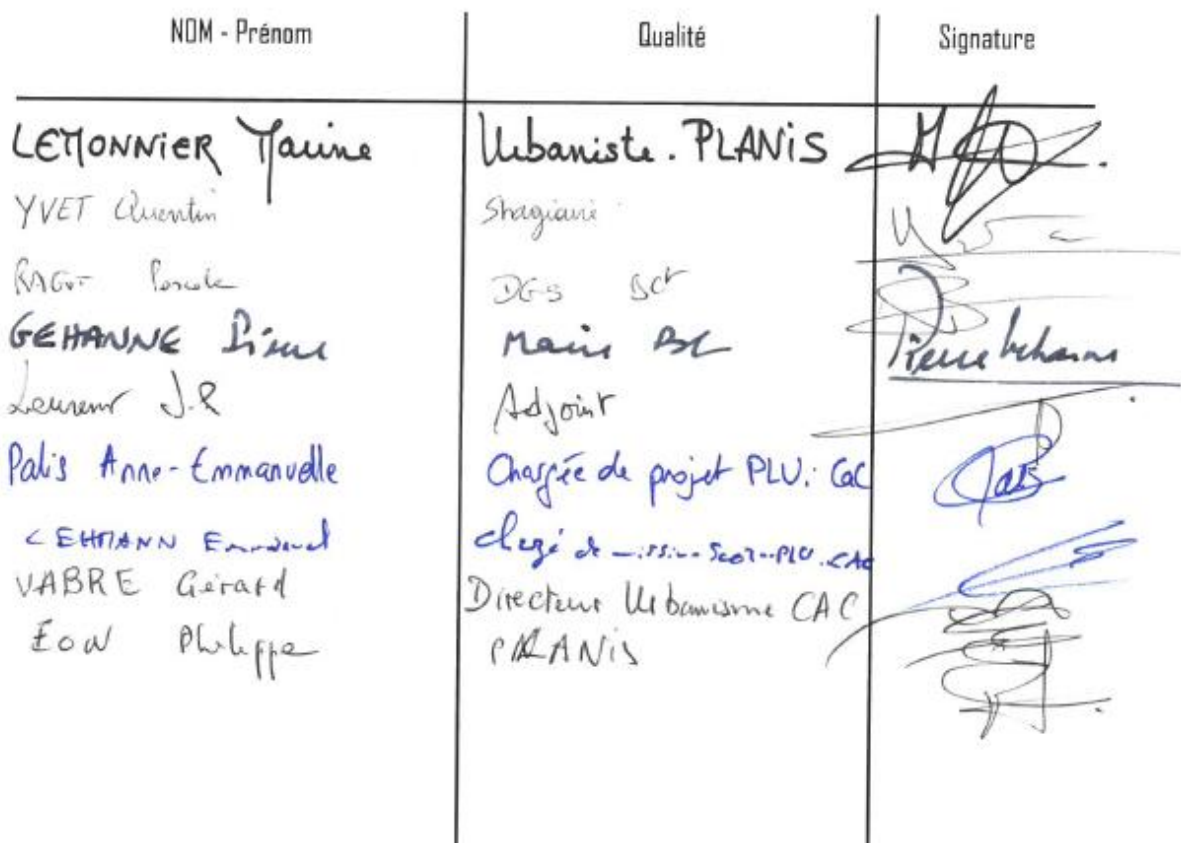 NOM - Prénom Qualité Signature
LEMONNIER Marine Urbaniste. PLANIS
YVET Quentin Stagiaire
RAGOT DGS
GEHANNE Pierre Maire BC Pierre Gehanne
Laurent J.P Adjoint
Palis Anne-Emmanuelle Chargée de projet PLUi CaC
LEHMANN Emmanuel chargé de mission Scot-PLU.CAC
VABRE Gérard Directeur Urbanisme CAC
EON Philippe PLANIS